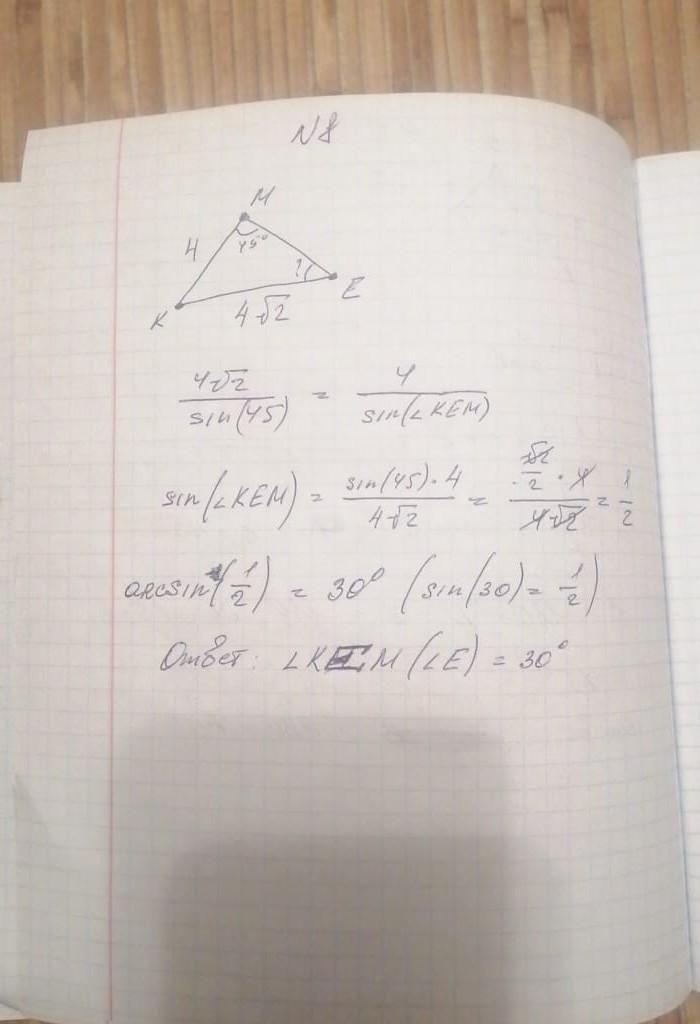 N8
M
4
45°
?
E
K
4√2
4√2/sin(45) = 4/sin(∠KEM)
sin(∠KEM) = sin(45)·4/4√2 = √2/2 · 4/4√2 = 1/2
arcsin(1/2) = 30° (sin(30) = 1/2)
Ответ: ∠KEM (∠E) = 30°